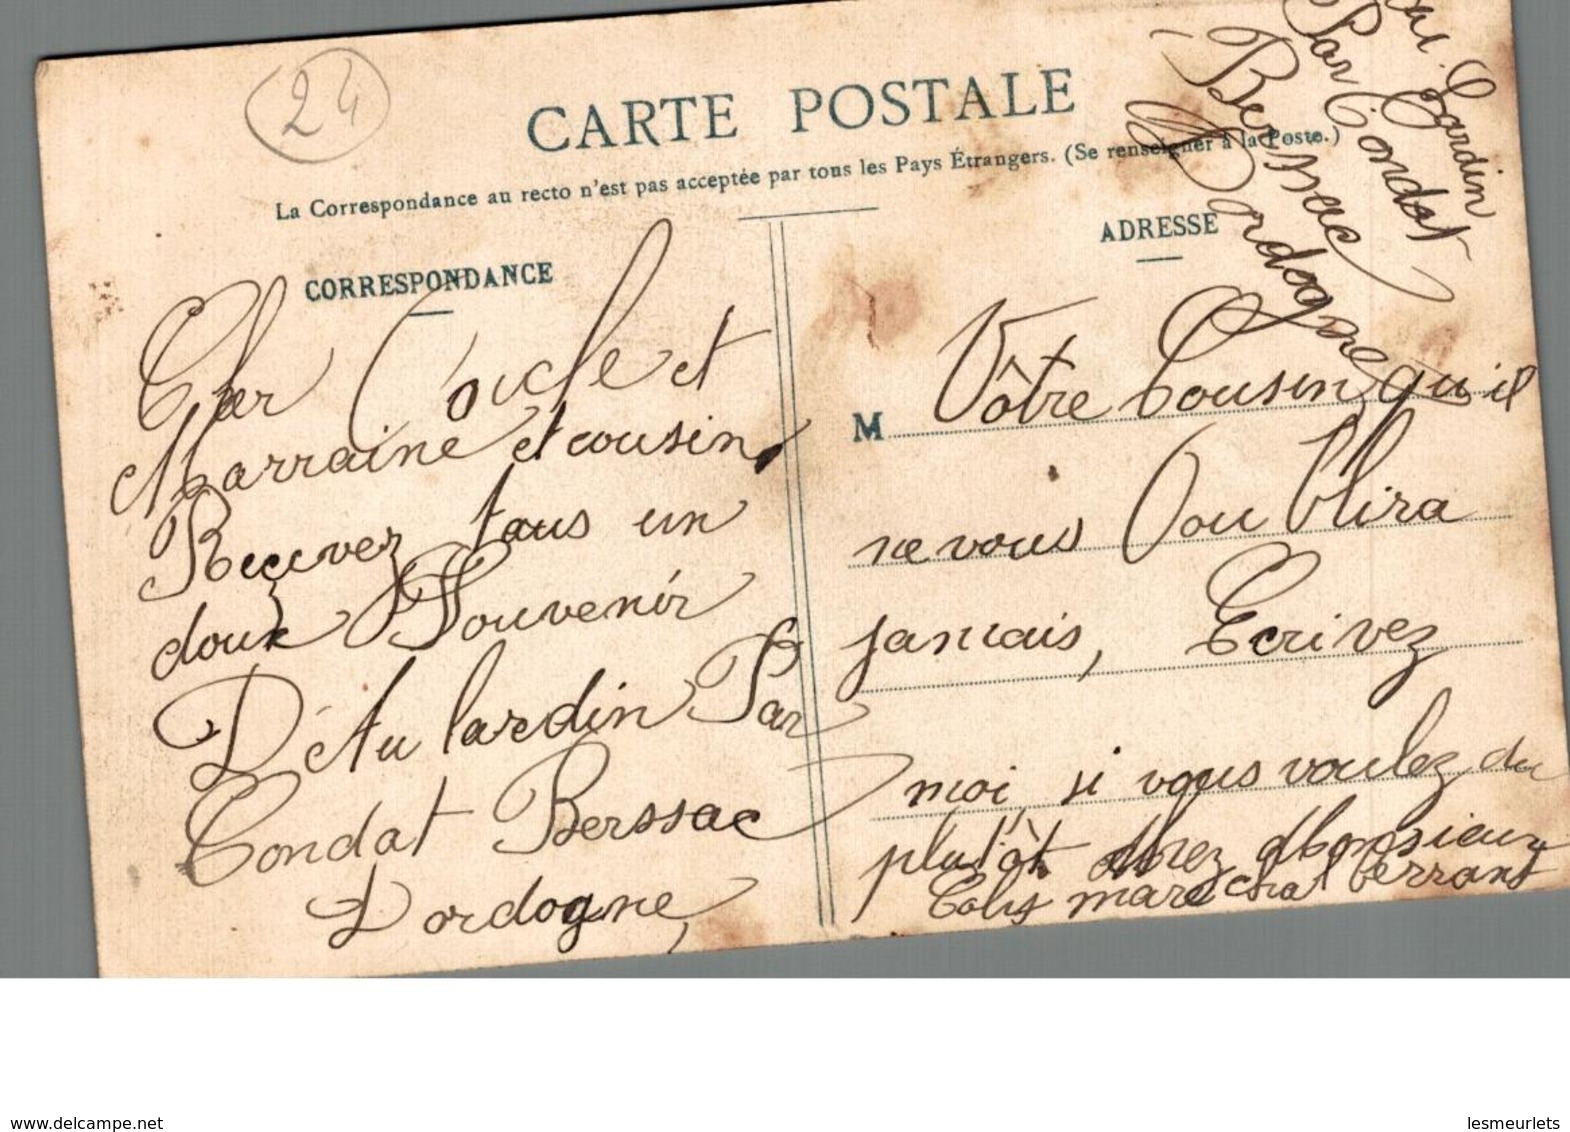 24
CARTE POSTALE
La Correspondance au recto n'est pas acceptée par tous les Pays Étrangers. (Se renseigner à la Poste.)
CORRESPONDANCE
Cher Oncle et
Marraine et cousin,
Recevez tous un
doux Souvenir
D'été Au Lardin Par
Condat Berssac
Dordogne,
ADRESSE
M Vôtre Cousin qu'il
ne vous oublira
jamais, Ecrivez
moi, si vous voulez du
plutôt chez Monsieur
Coly marechal ferrant
Lardin
Par Condat
Berssac
Dordogne
delcampe.net
lesmeurlets